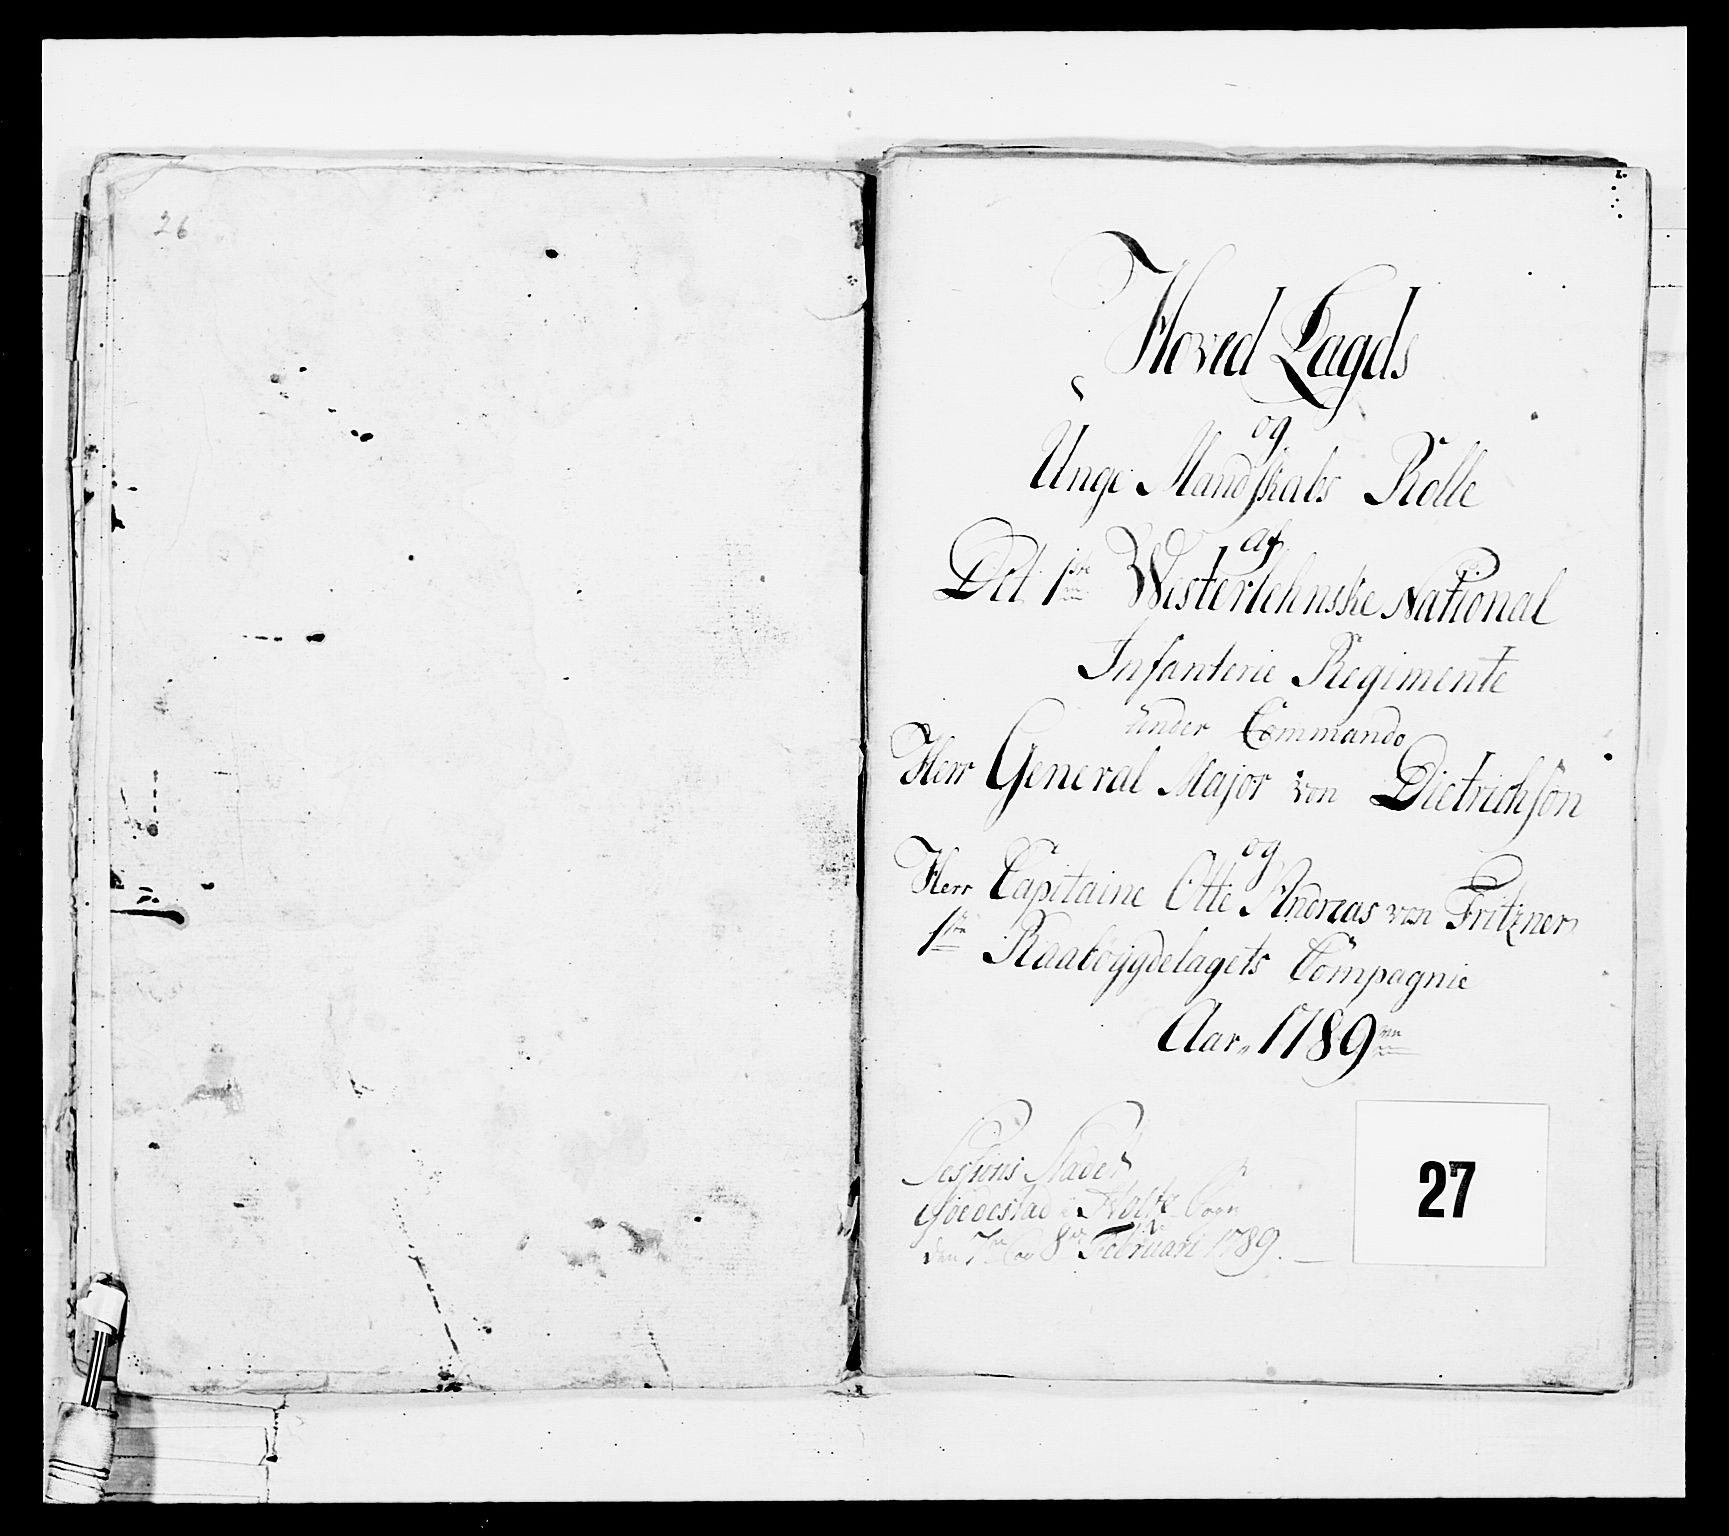 26
Hoved Lagds
og
Unge Mandskabs Rolle
af
Det 1ste Westerlehnske National
Infanterie Regimente
under Commando
Herr General Major von Dietrichsön
og
Herr Capitaine Otte Andreas von Fritzner
1ste Raabøygdelagets Compagnie
Aar 1789
Sessions Stædet
Giødestad i Holte Sogn
den 7de og 8de Februari 1789.
27